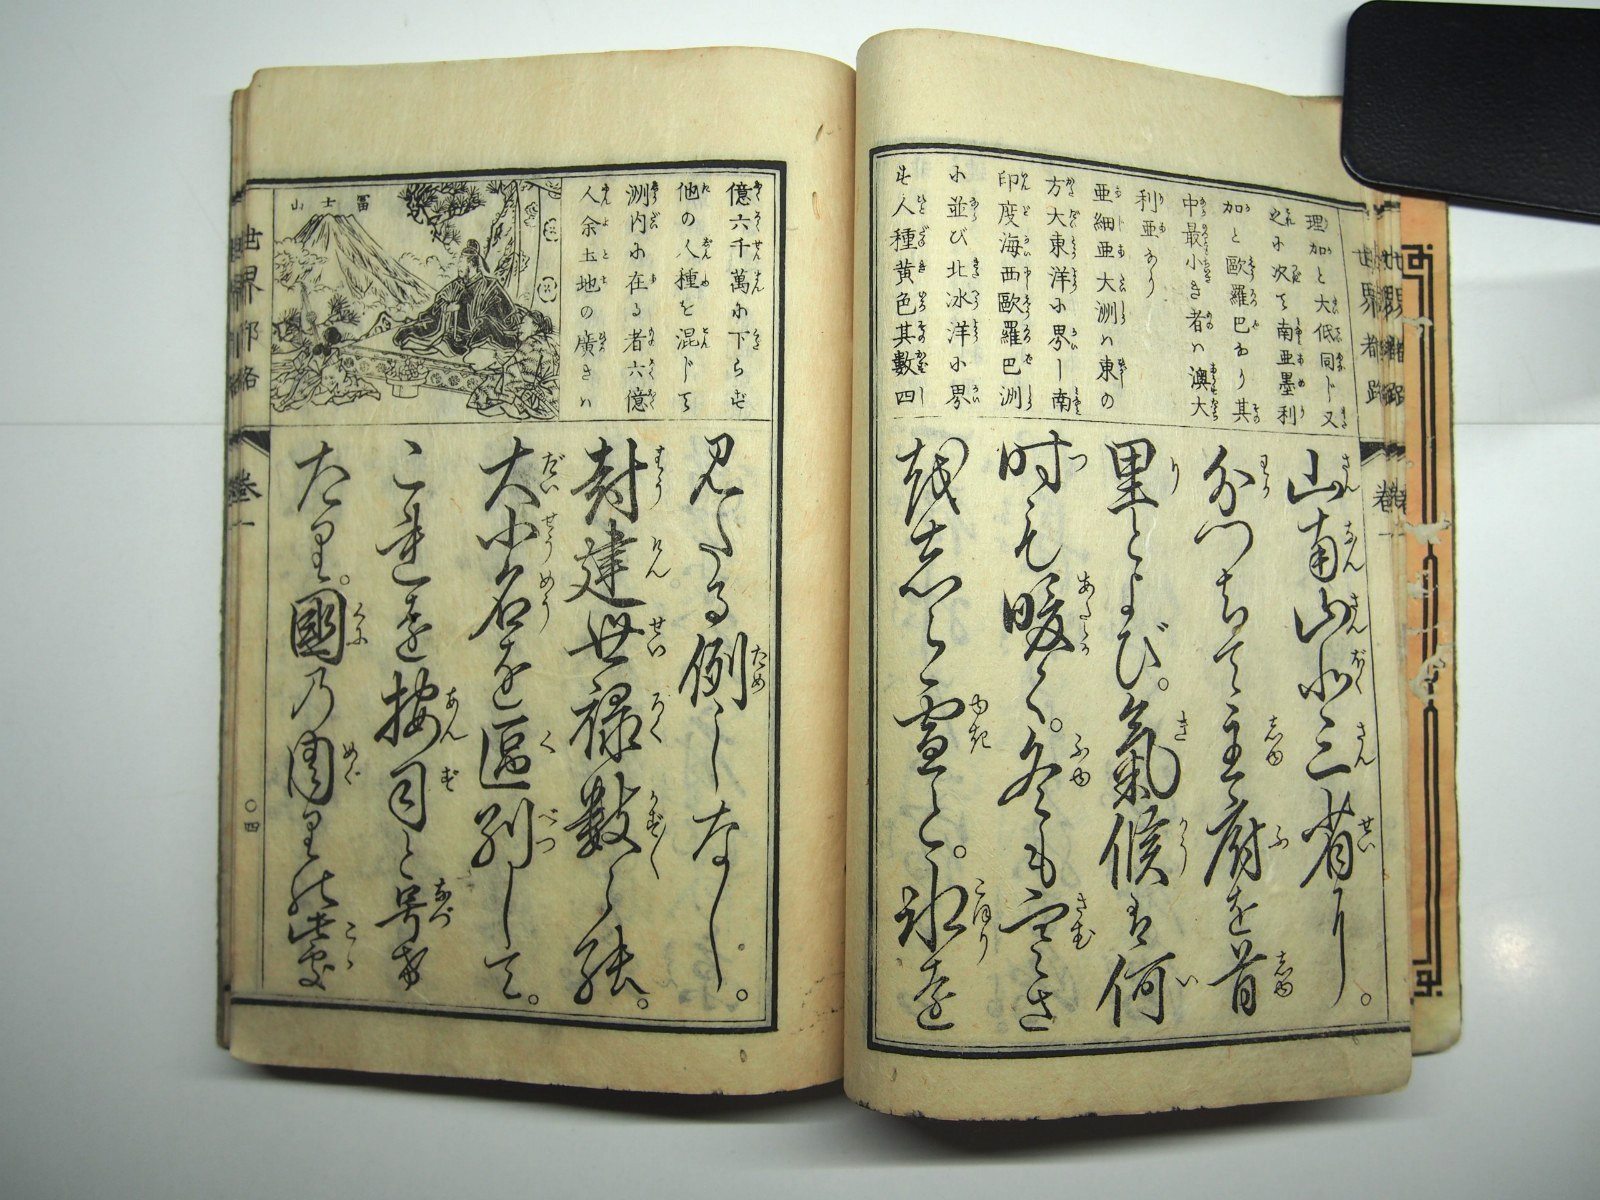 世界都路 卷一
理加と大低同じ又
之に次て南亜墨利
加と歐羅巴あり其
中最小き者ハ澳大
利亜あり
亜細亜大洲ハ東の
方大東洋に界し南
印度海西歐羅巴洲
に並び北冰洋に界
す人種黄色其數四
山南山北三省なり。
分かちて主府を首
里とよび。氣候は何
時も暖く。冬も寒さ
をしら雪と。氷を
億六千萬に下らず
他の人種を混じて
洲内に在る者六億
人余土地の廣きハ
冨士山
見たる例しなし。
封建世禄數
大小名を區別して。
これを按司と号け
たり。國の周り 此處
世界都路 卷一 〇四